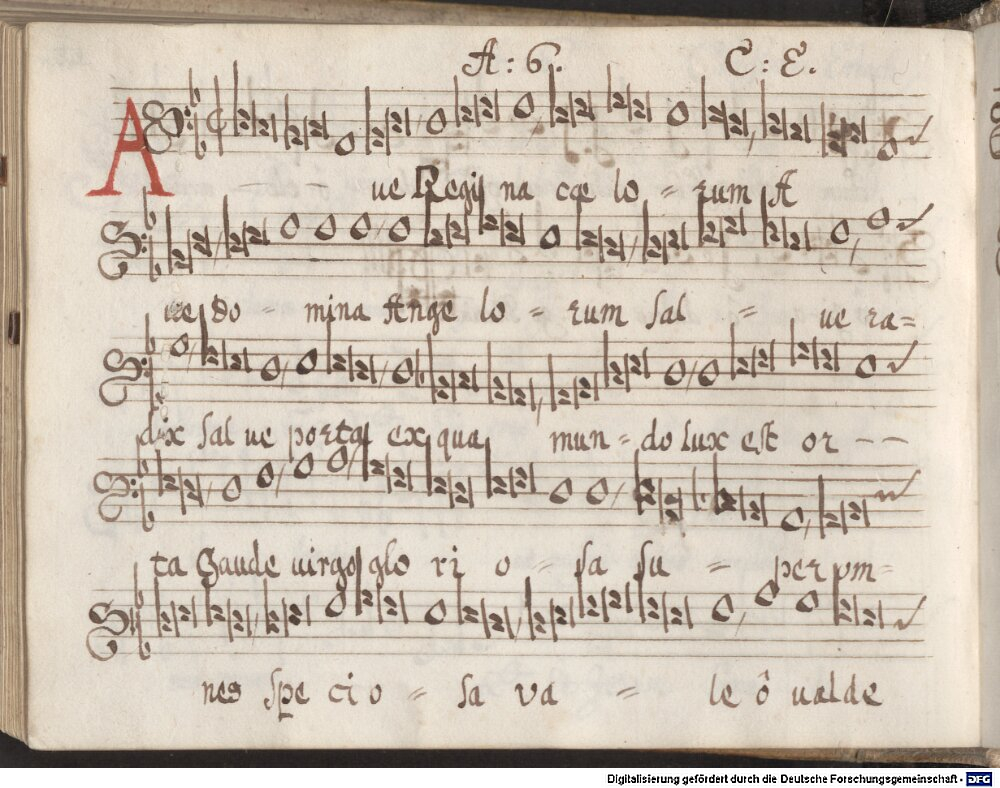 A: 6. C: E.
A ue Regi na cœ lo = rum A
ue do = mina Ange lo = rum sal = ue ra=
dix sal ue porta ex qua mun = do lux est or - -
ta Gaude uirgo glo ri o = sa su = per om=
nes spe ci o = sa va = le ô ualde
Digitalisierung gefördert durch die Deutsche Forschungsgemeinschaft - DFG